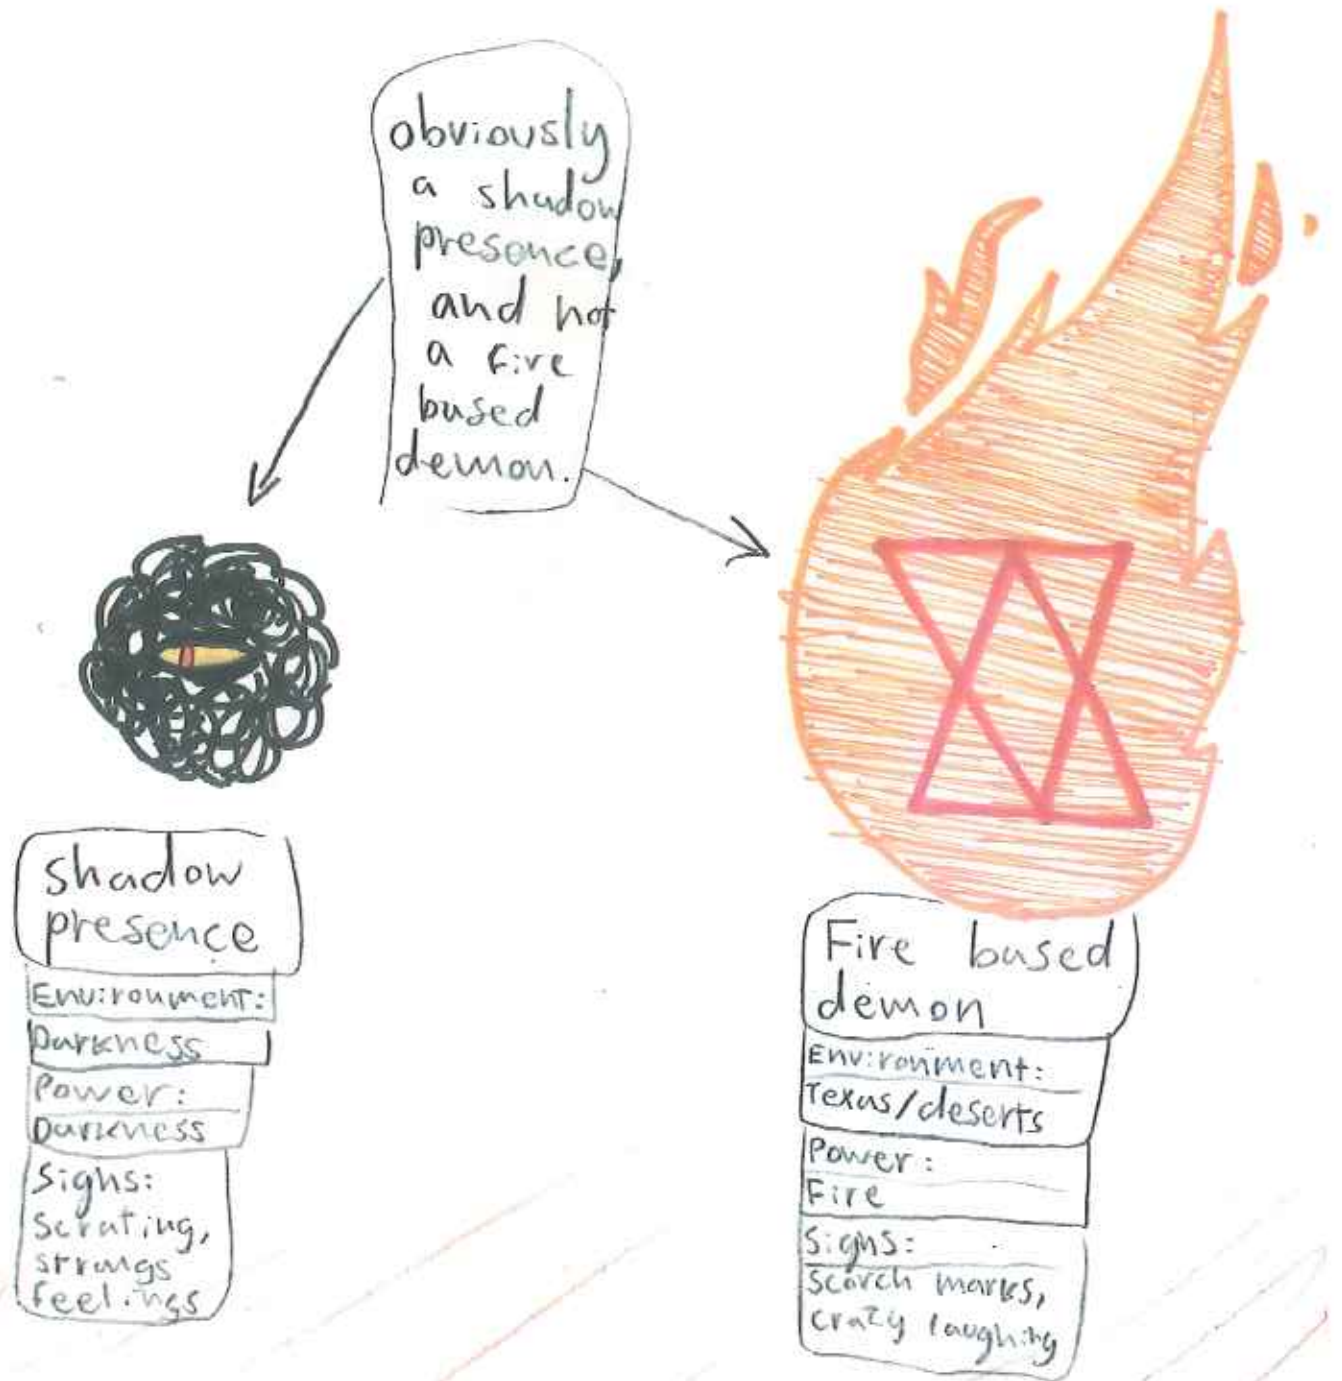 obviously
a shadow
presence,
and not
a fire
based
demon.
shadow
presence
Environment:
Darkness
Power:
Darkness
Signs:
scrating,
strangs
feelings
Fire based
demon
Environment:
Texas/deserts
Power:
Fire
Signs:
scorch marks,
crazy laughing